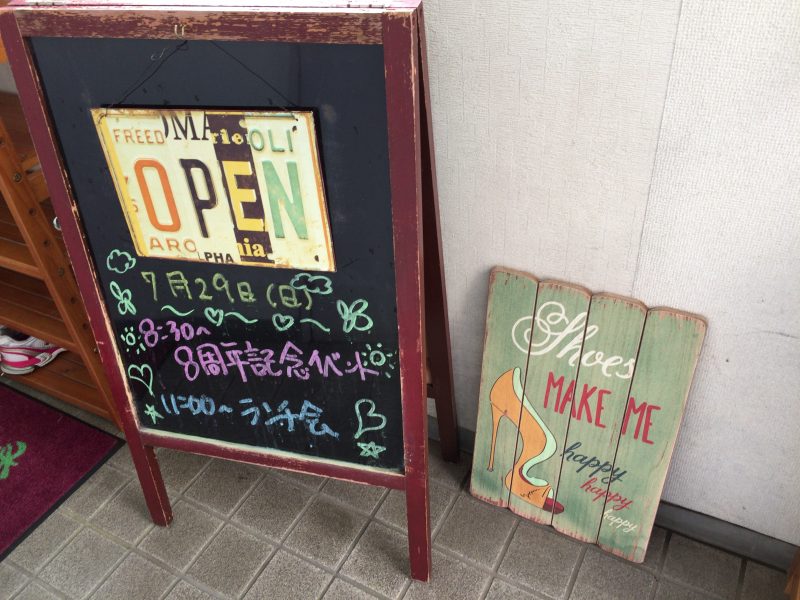 FREED OMA rio OLI
OPEN
ARO LPHA nia
7月29日(日)
8:30〜
8周年記念イベント
11:00〜ランチ会
Shoes
MAKE ME
happy
happy
happy